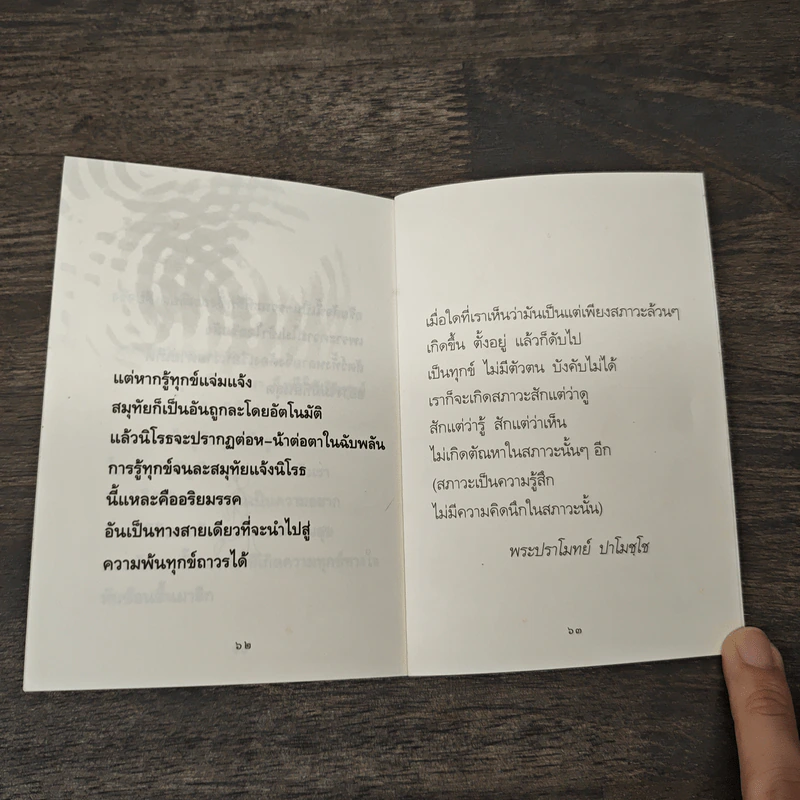 แต่หากรู้ทุกข์แจ่มแจ้ง
สมุทัยก็เป็นอันถูกละโดยอัตโนมัติ
แล้วนิโรธจะปรากฏต่อห-น้าต่อตาในฉับพลัน
การรู้ทุกข์จนละสมุทัยแจ้งนิโรธ
นี้แหละคืออริยมรรค
อันเป็นทางสายเดียวที่จะนำไปสู่
ความพ้นทุกข์ถาวรได้
๖๒
เมื่อใดที่เราเห็นว่ามันเป็นแต่เพียงสภาวะล้วนๆ
เกิดขึ้น ตั้งอยู่ แล้วก็ดับไป
เป็นทุกข์ ไม่มีตัวตน บังคับไม่ได้
เราก็จะเกิดสภาวะสักแต่ว่าดู
สักแต่ว่ารู้ สักแต่ว่าเห็น
ไม่เกิดตัณหาในสภาวะนั้นๆ อีก
(สภาวะเป็นความรู้สึก
ไม่มีความคิดนึกในสภาวะนั้น)
พระปราโมทย์ ปาโมชฺโช
๖๓